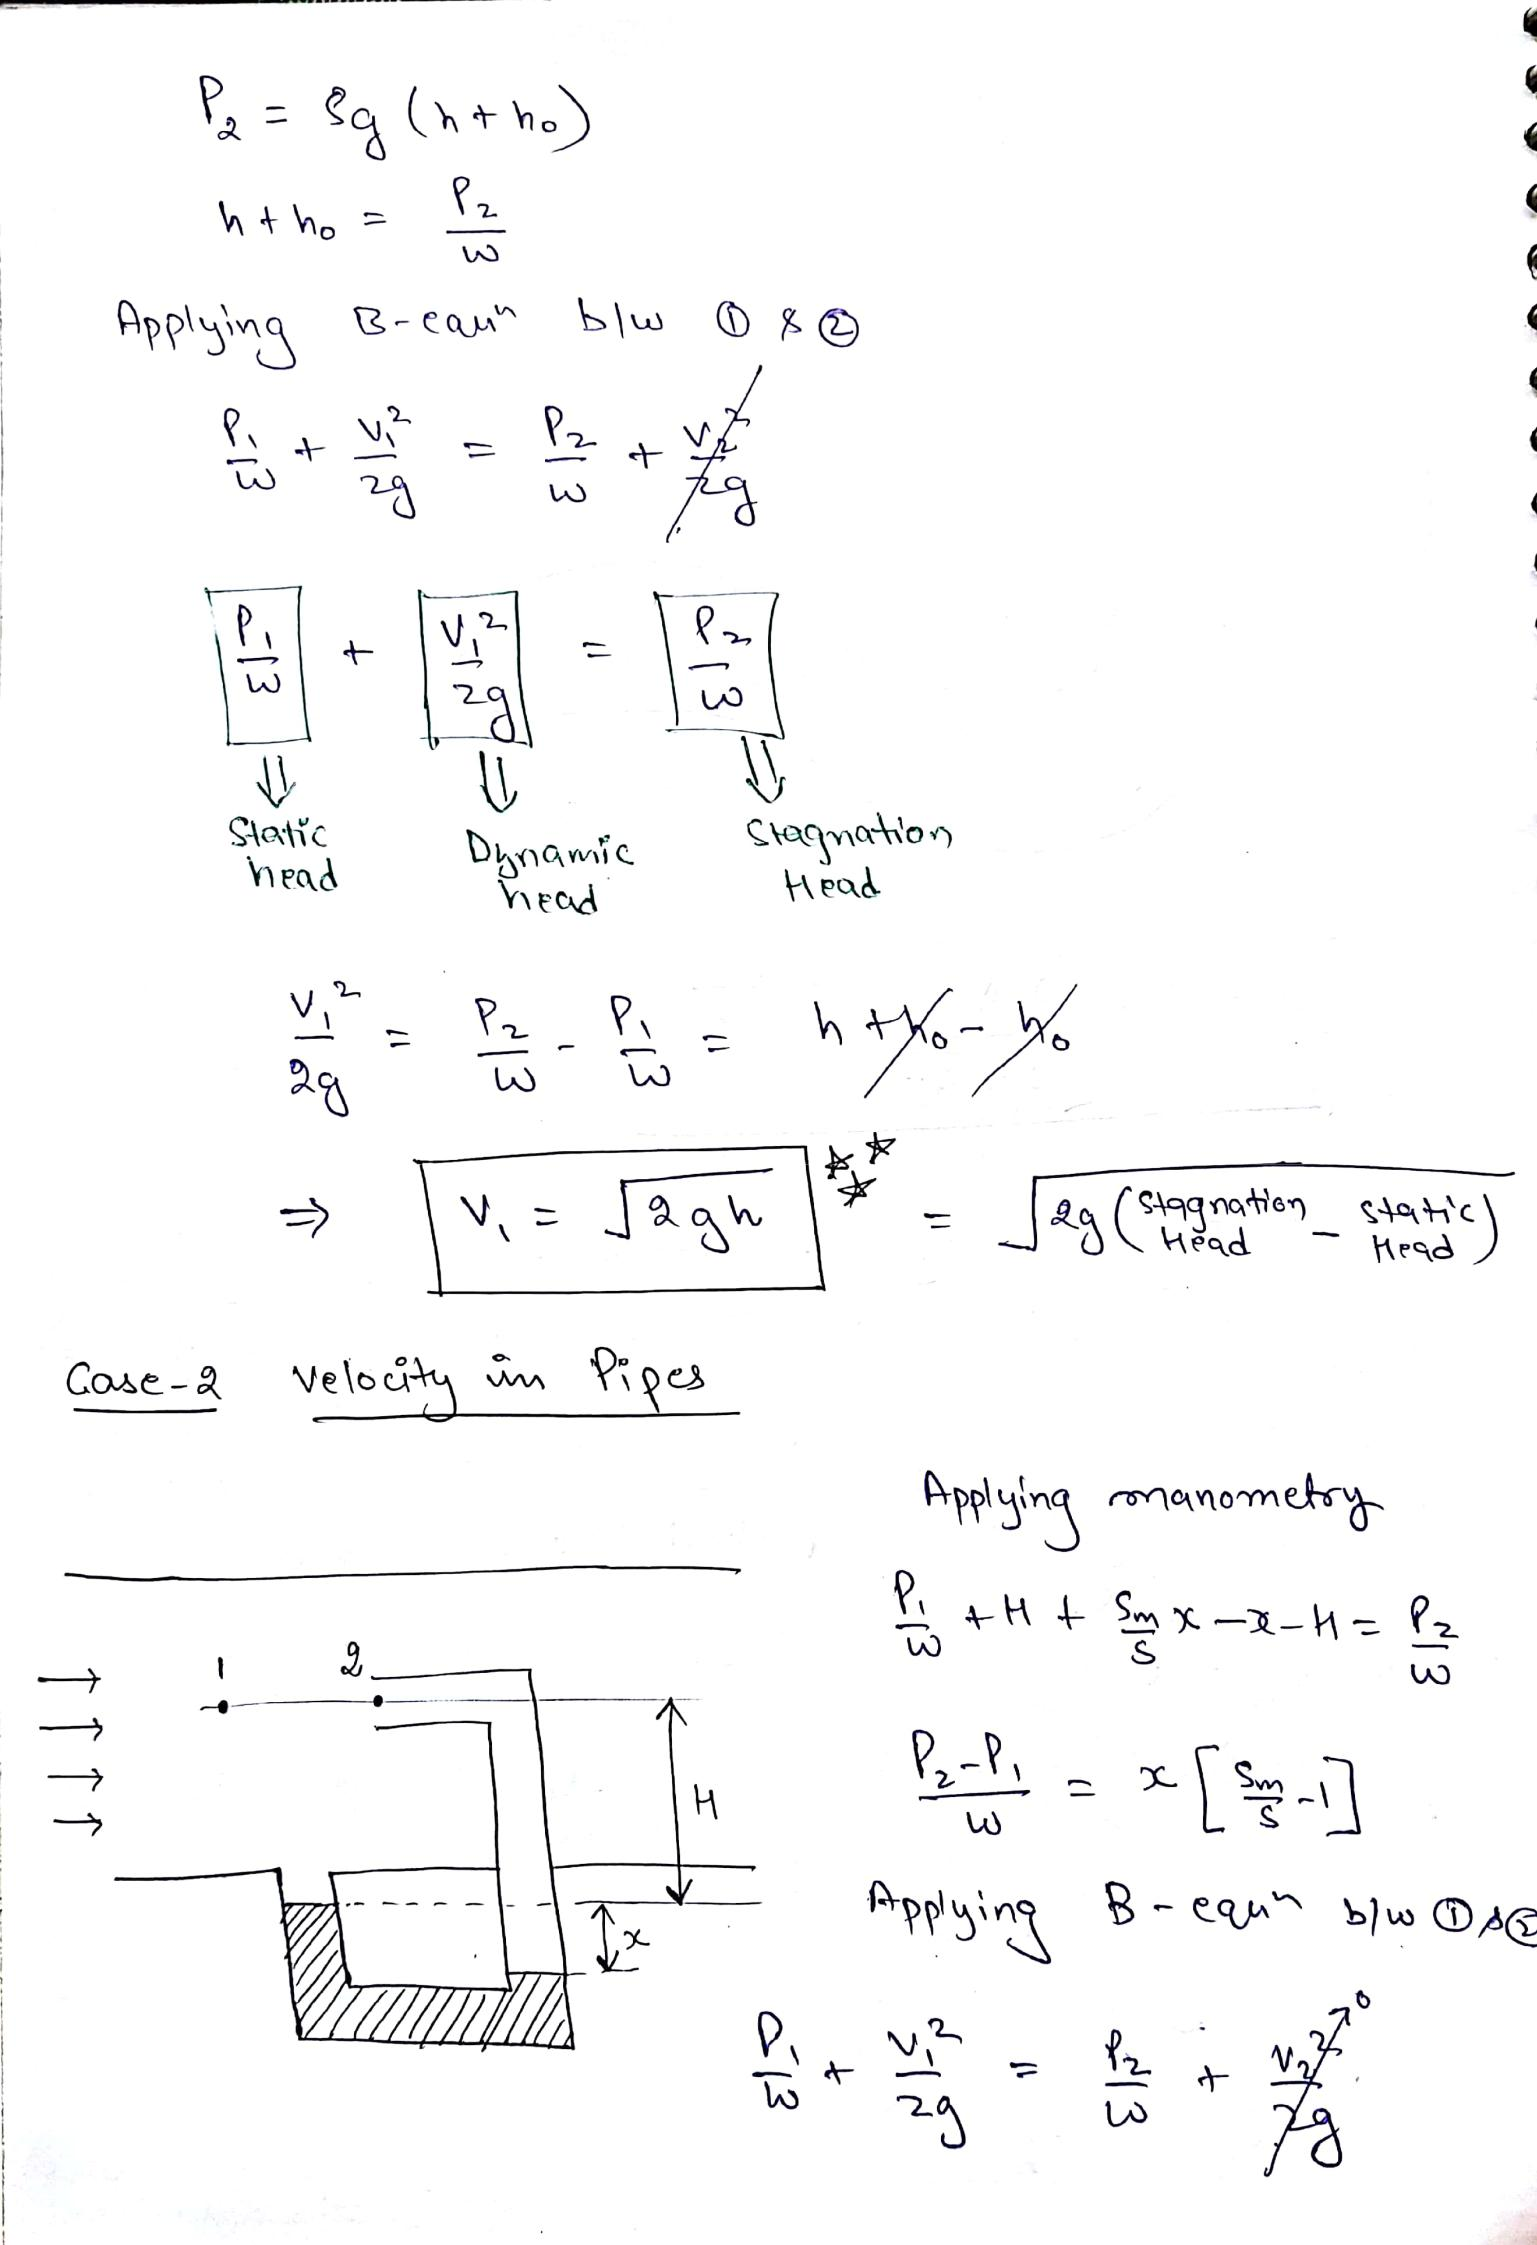 P₂ = ρg (h + h₀)
h + h₀ = P₂/w
Applying B-equⁿ b/w ① & ②
P₁/w + V₁²/2g = P₂/w + V₂²/2g
P₁/w + V₁²/2g = P₂/w
⇓ ⇓ ⇓
Static head Dynamic head Stagnation Head
V₁²/2g = P₂/w - P₁/w = h + h₀ - h₀
⇒ V₁ = √2gh *** = √2g (Stagnation Head - Static Head)
Case-2 Velocity in Pipes
Applying manometry
P₁/w + H + Sm/S x - x - H = P₂/w
1 2
P₂-P₁/w = x [Sm/S - 1]
H
Applying B-equⁿ b/w ① & ②
x
P₁/w + V₁²/2g = P₂/w + V₂²/2g → 0